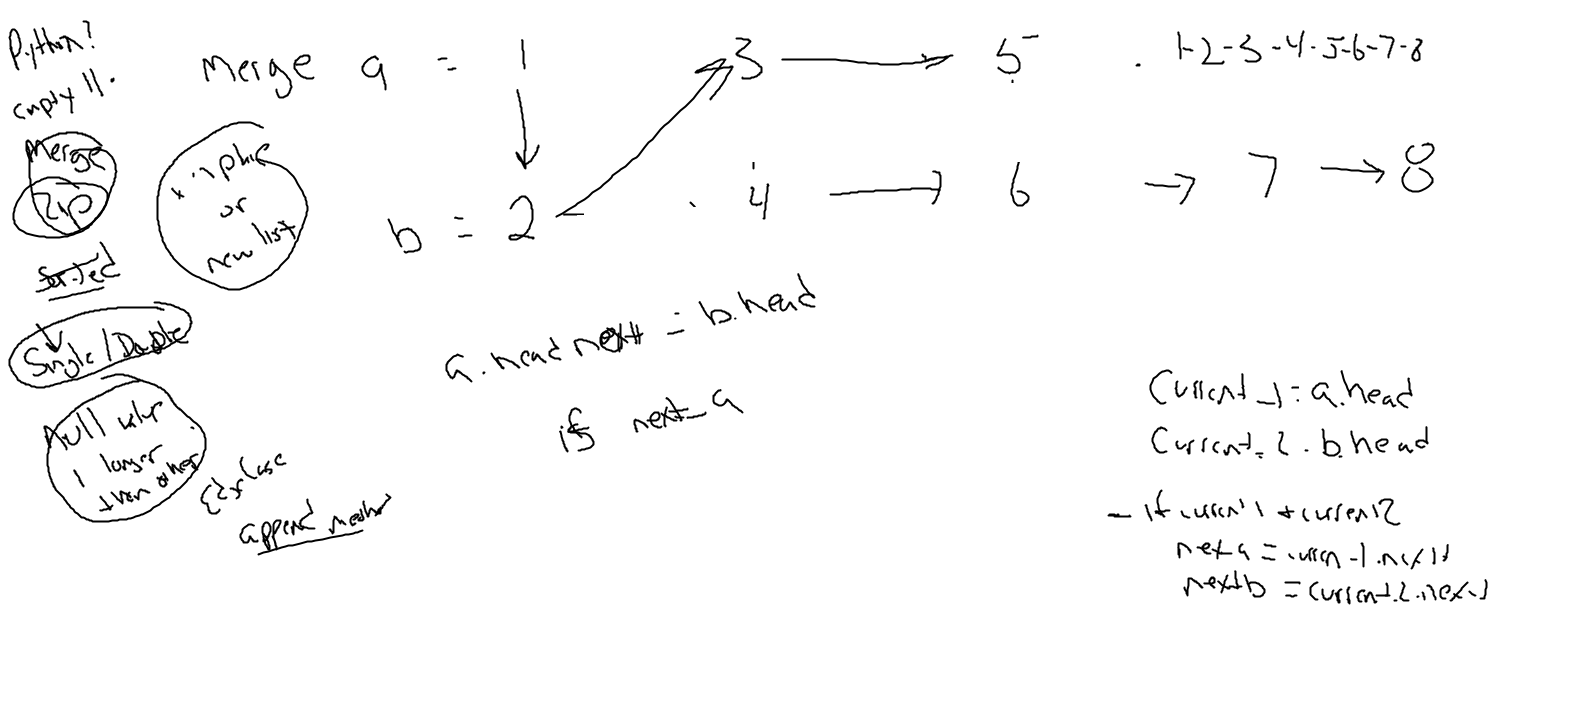 Python?
empty ll.
Merge
Zip
Sorted
Single/Double
Null value
1 longer
than other
Edge Case
append method
in place
or
new list
Merge a = 1 3 5
1-2-3-4-5-6-7-8
b = 2 4 6 7 8
a.head next = b.head
if next_a
Current_1 = a.head
Current_2 . b.head
- if current1 + current2
next a = curren-1.next
nextb = current.2.next